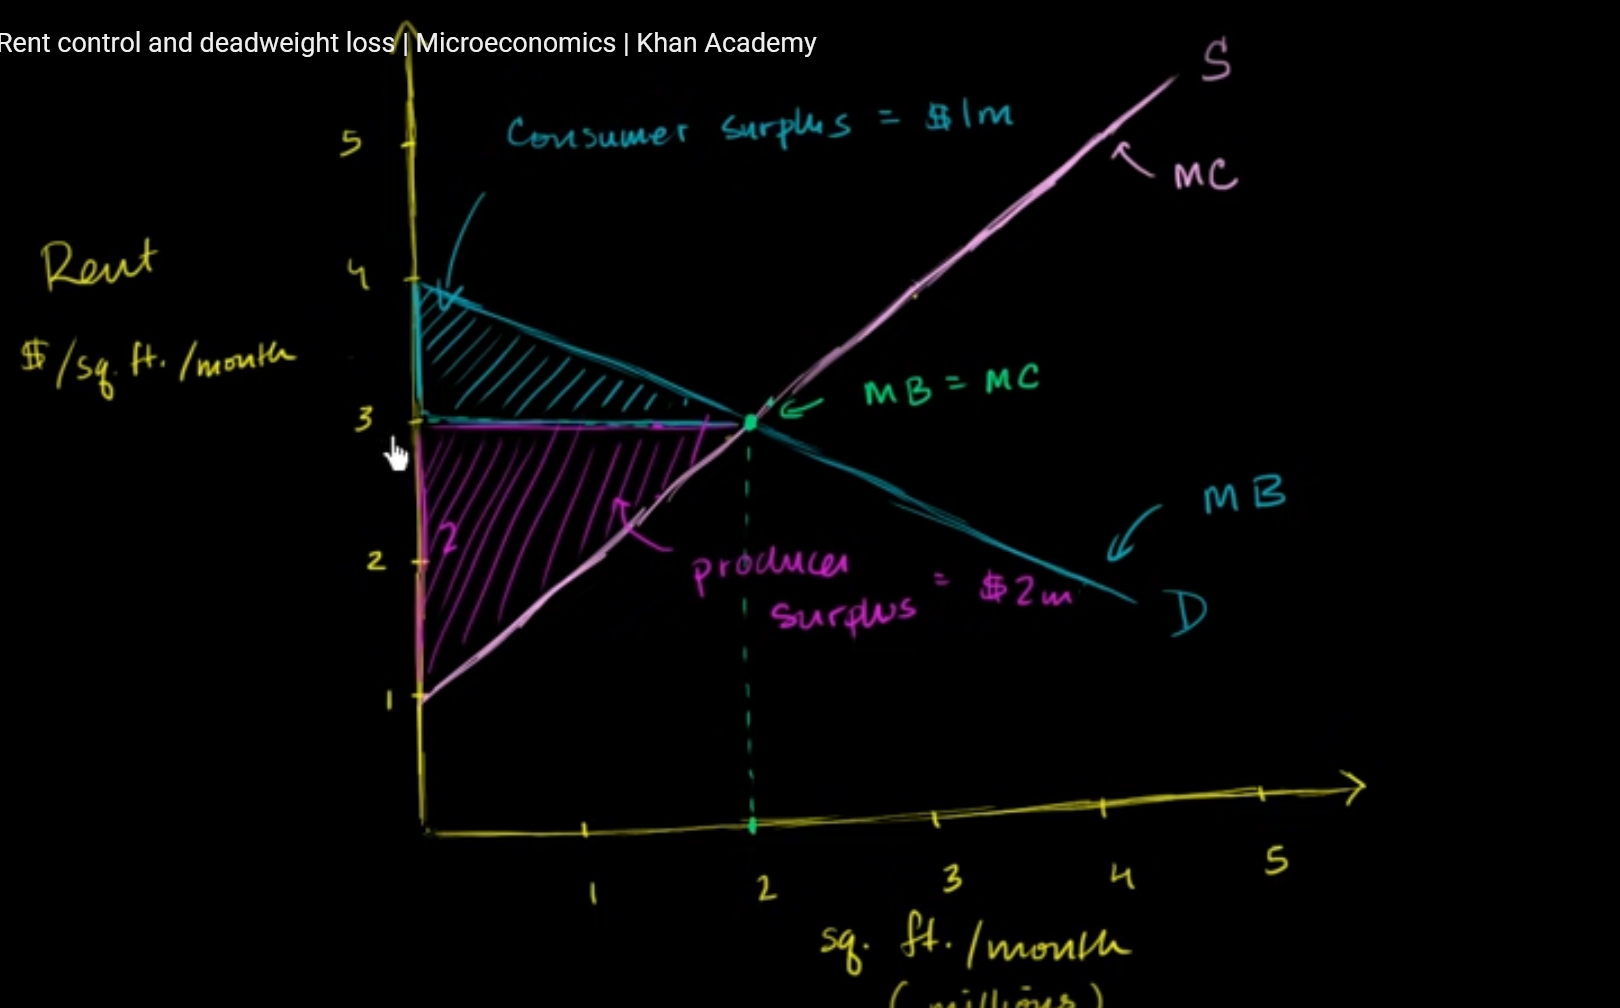 Rent control and deadweight loss | Microeconomics | Khan Academy
S
Consumer surplus = $1m
5
MC
Rent
4
$/sq. ft. /month
MB = MC
3
MB
2
2
producer
surplus = $2m
D
1
1
2
3
4
5
sq. ft. /month
(millions)